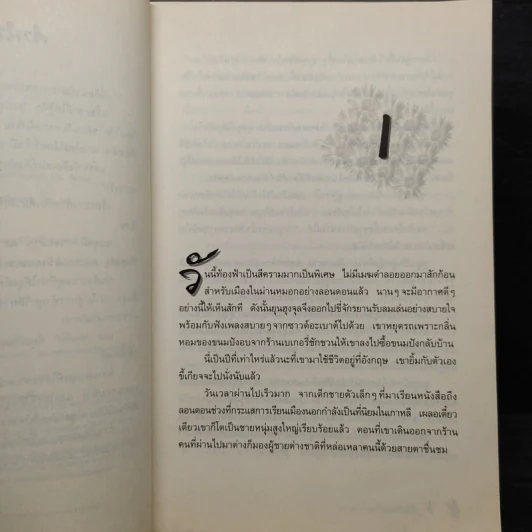 1
วันนี้ท้องฟ้าเป็นสีครามมากเป็นพิเศษ ไม่มีเมฆดำลอยออกมาสักก้อน
สำหรับเมืองในม่านหมอกอย่างลอนดอนแล้ว นานๆ จะมีอากาศดีๆ
อย่างนี้ให้เห็นสักที ดังนั้นยุนฮูงจุลจึงออกไปขี่จักรยานรับลมเล่นอย่างสบายใจ
พร้อมกับฟังเพลงสบายๆ จากซาวด์อะเบาต์ไปด้วย เขาหยุดรถเพราะกลิ่น
หอมของขนมปังอบจากร้านเบเกอรี่ชักชวนให้เขาลงไปซื้อขนมปังกลับบ้าน
นี่เป็นปีที่เท่าไหร่แล้วนะที่เขามาใช้ชีวิตอยู่ที่อังกฤษ เขายิ้มกับตัวเอง
ขี้เกียจจะไปนั่งนับแล้ว
วันเวลาผ่านไปเร็วมาก จากเด็กชายตัวเล็กๆ ที่มาเรียนหนังสือถึง
ลอนดอนช่วงที่กระแสการเรียนเมืองนอกกำลังเป็นที่นิยมในเกาหลี เผลอเดี๋ยว
เดียวเขาก็โตเป็นชายหนุ่มสูงใหญ่เรียบร้อยแล้ว ตอนที่เขาเดินออกจากร้าน
คนที่ผ่านไปมาต่างก็มองผู้ชายต่างชาติที่หล่อเหลาคนนี้ด้วยสายตาชื่นชม